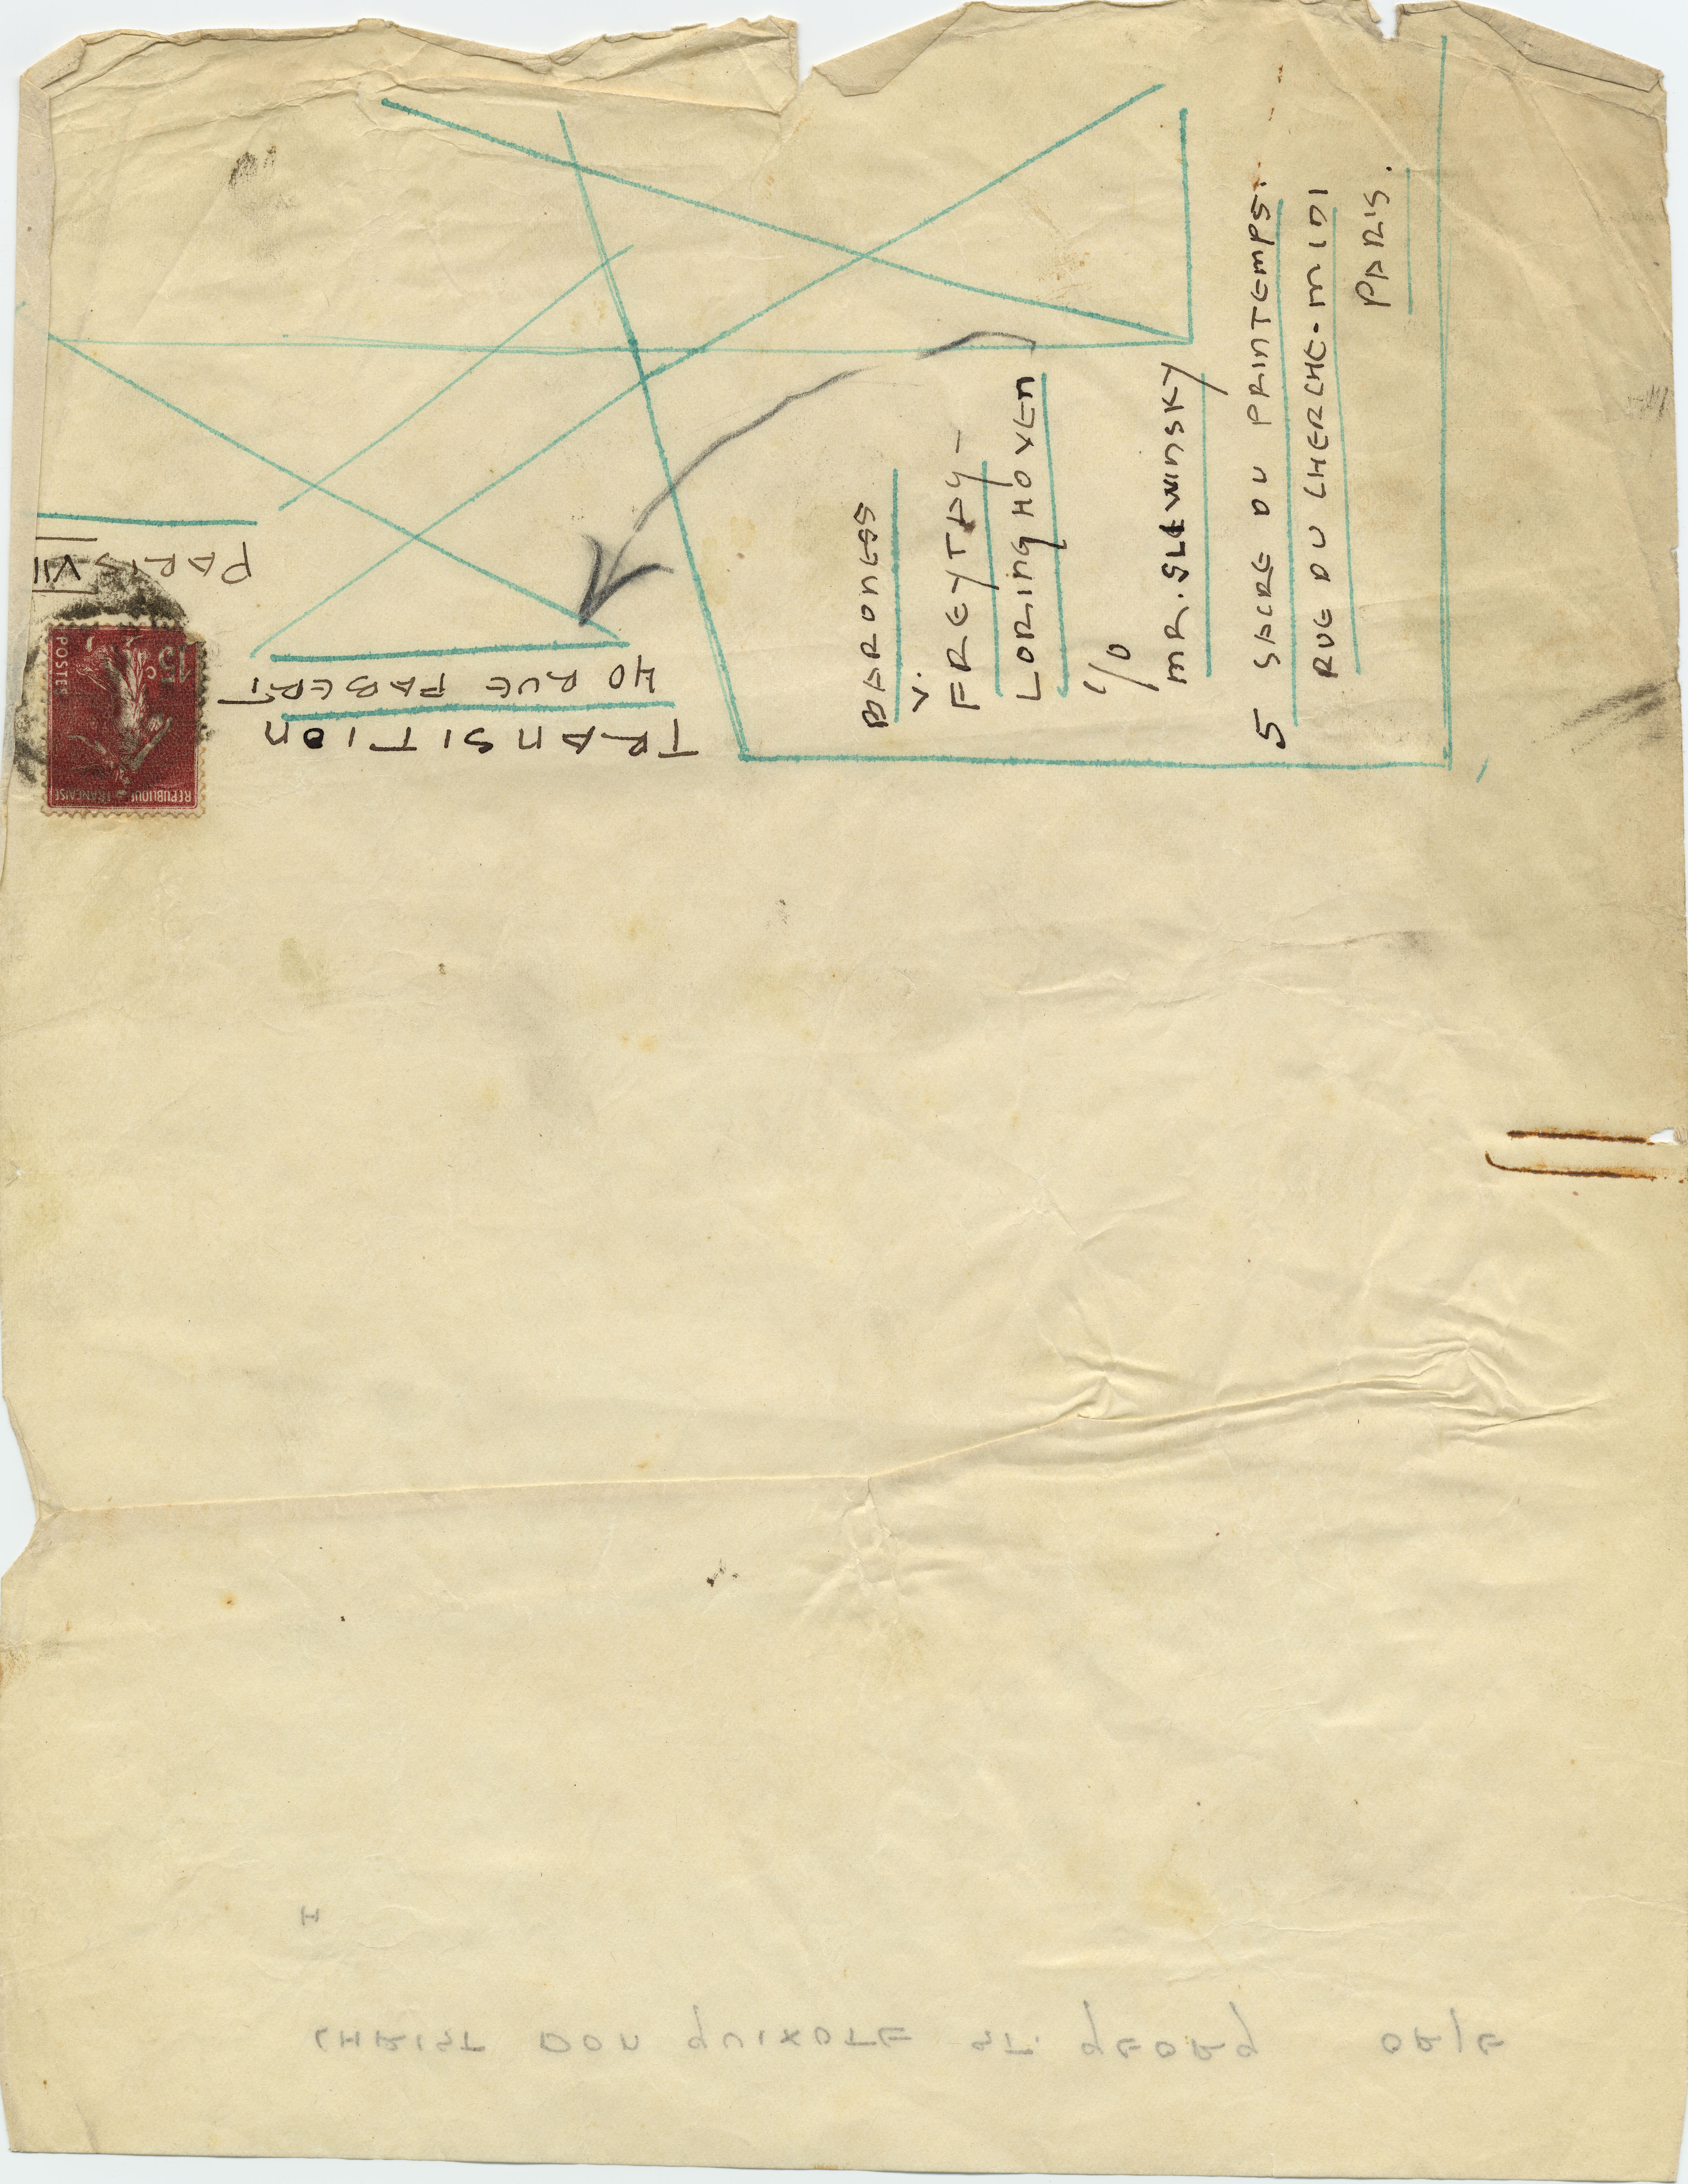 BARONESS
V.
FREYTAG-
LORINGHOVEN
C/O
MR. SLEWINSKY
5 SACRE DU PRINTEMPS.
RUE DU CHERCHE-MIDI
PARIS.
TRANSITION
40 RUE FABERT
PARIS VII
REPUBLIQUE FRANCAISE
15 c
POSTES
H
CHRIST DON QUIXOTE ST. GEORG